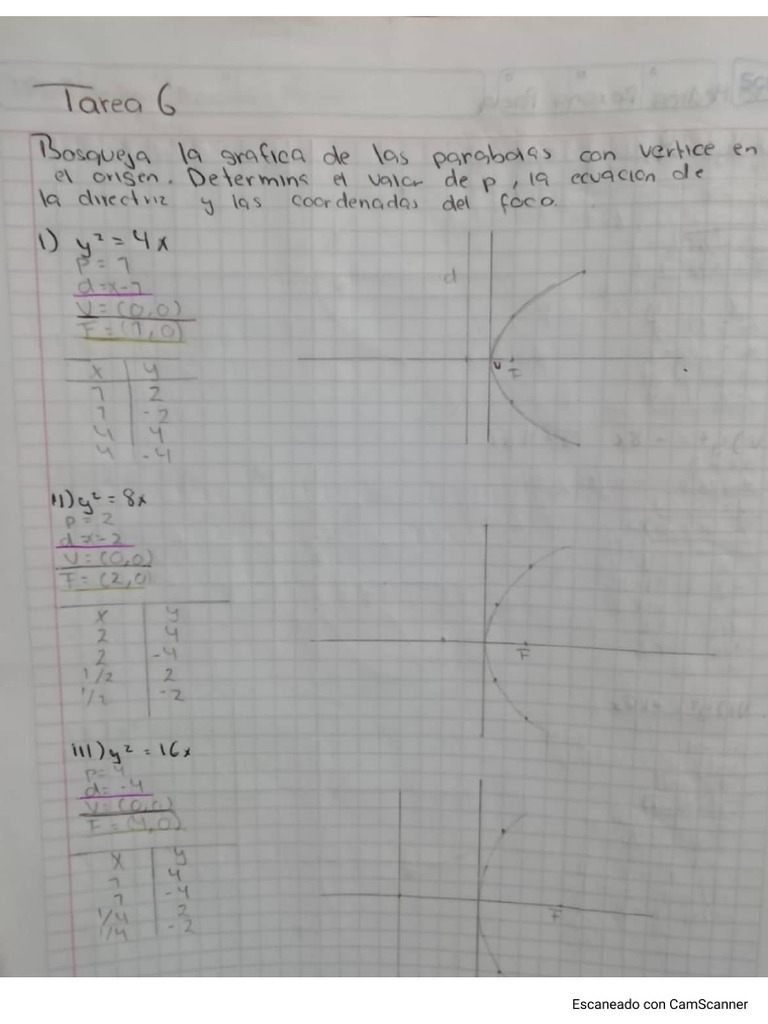 Tarea 6
Bosqueja la grafica de las parabolas con vertice en
el origen. Determina el valor de p, la ecuacion de
la directriz y las coordenadas del foco.
I) y² = 4x
P = 1
d = x-1
V = (0,0)
F = (1,0)
x y
1 2
1 -2
4 4
4 -4
d
V F
II) y² = 8x
P = 2
d x=-2
V = (0,0)
F = (2,0)
x y
2 4
2 -4
1/2 2
1/2 -2
F
III) y² = 16x
P= 4
d= -4
V = (0,0)
F = (4,0)
x y
1 4
1 -4
1/4 2
1/4 -2
F
Escaneado con CamScanner